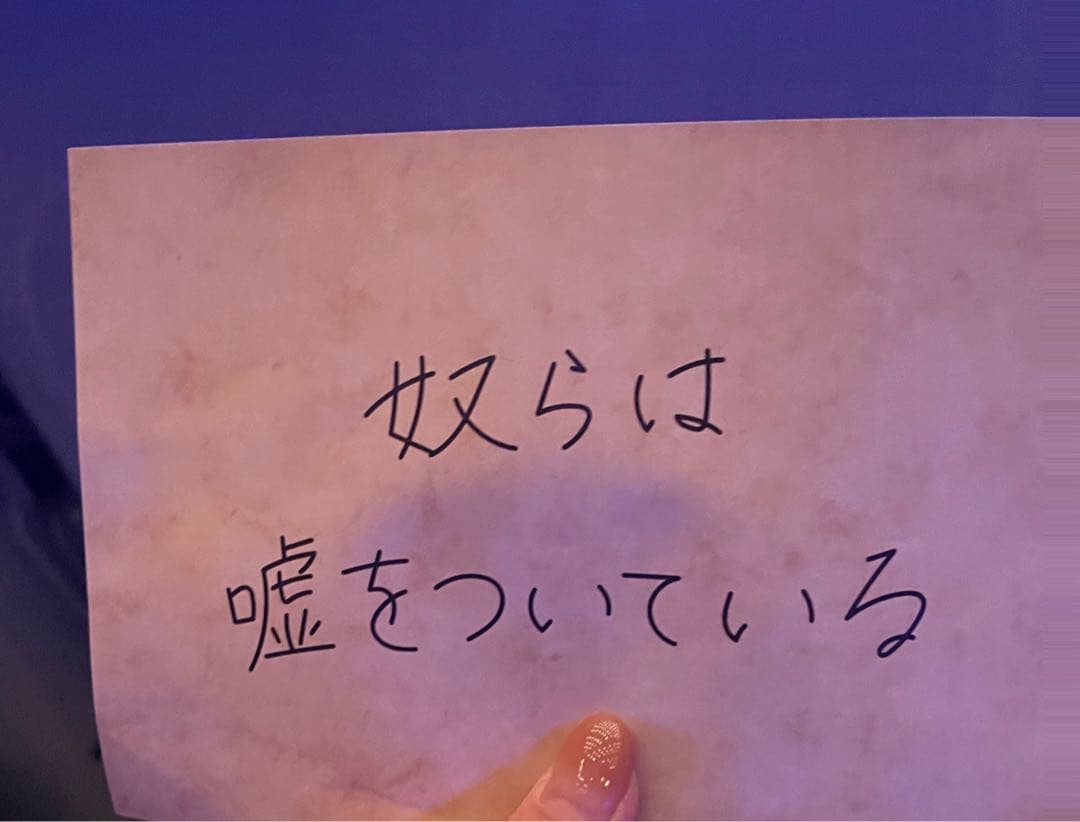 奴らは
嘘をついている